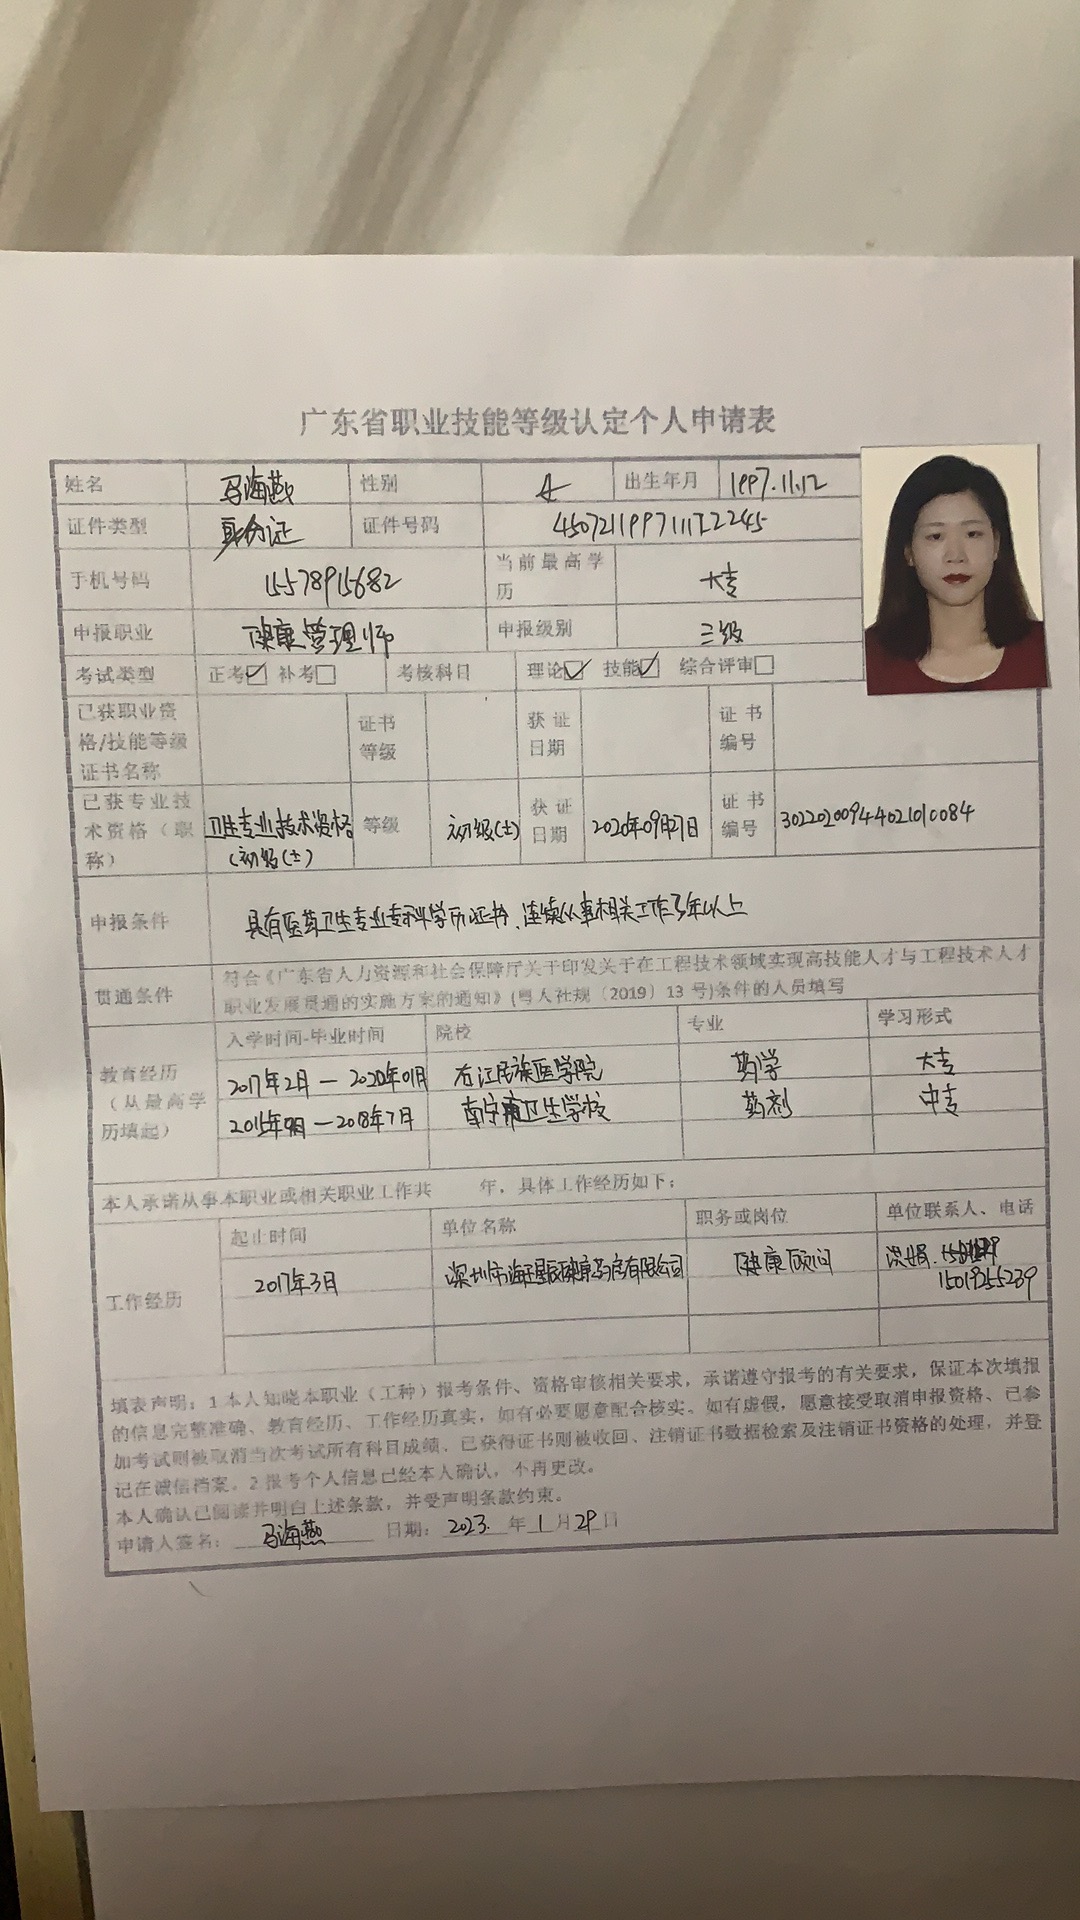 广东省职业技能等级认定个人申请表
姓名 马海燕 性别 女 出生年月 1997.11.12
证件类型 身份证 证件号码
手机号码 15578915682 当前最高学历 大专
申报职业 健康管理师 申报级别 三级
考试类型 正考☑ 补考□ 考核科目 理论☑ 技能☑ 综合评审□
已获职业资格/技能等级证书名称 证书等级 获证日期 证书编号
已获专业技术资格（职称） 卫生专业技术资格（初级（士） 等级 初级（士） 获证日期 2020年09月27日 证书编号 30220200944021010084
申报条件 具有医药卫生专业专科学历证书、连续从事相关工作3年以上
贯通条件 符合《广东省人力资源和社会保障厅关于印发关于在工程技术领域实现高技能人才与工程技术人才
职业发展贯通的实施方案的通知》(粤人社规〔2019〕13 号)条件的人员填写
教育经历（从最高学历填起） 入学时间-毕业时间 院校 专业 学习形式
2017年2月 — 2020年01月 右江民族医学院 药学 大专
2015年9月 — 2018年7月 南宁市卫生学校 药剂 中专
本人承诺从事本职业或相关职业工作共 年，具体工作经历如下：
工作经历 起止时间 单位名称 职务或岗位 单位联系人、电话
2017年3月 深圳市海王星辰健康药房有限公司 健康顾问
15019255239
填表声明：1 本人知晓本职业（工种）报考条件、资格审核相关要求，承诺遵守报考的有关要求，保证本次填报
的信息完整准确、教育经历、工作经历真实，如有必要愿意配合核实。如有虚假，愿意接受取消申报资格、已参
加考试则被取消当次考试所有科目成绩、已获得证书则被收回、注销证书数据检索及注销证书资格的处理，并登
记在诚信档案。2 报考个人信息已经本人确认，不再更改。
本人确认已阅读并明白上述条款，并受声明条款约束。
申请人签名： 马海燕 日期： 2023. 年 1 月 29 日